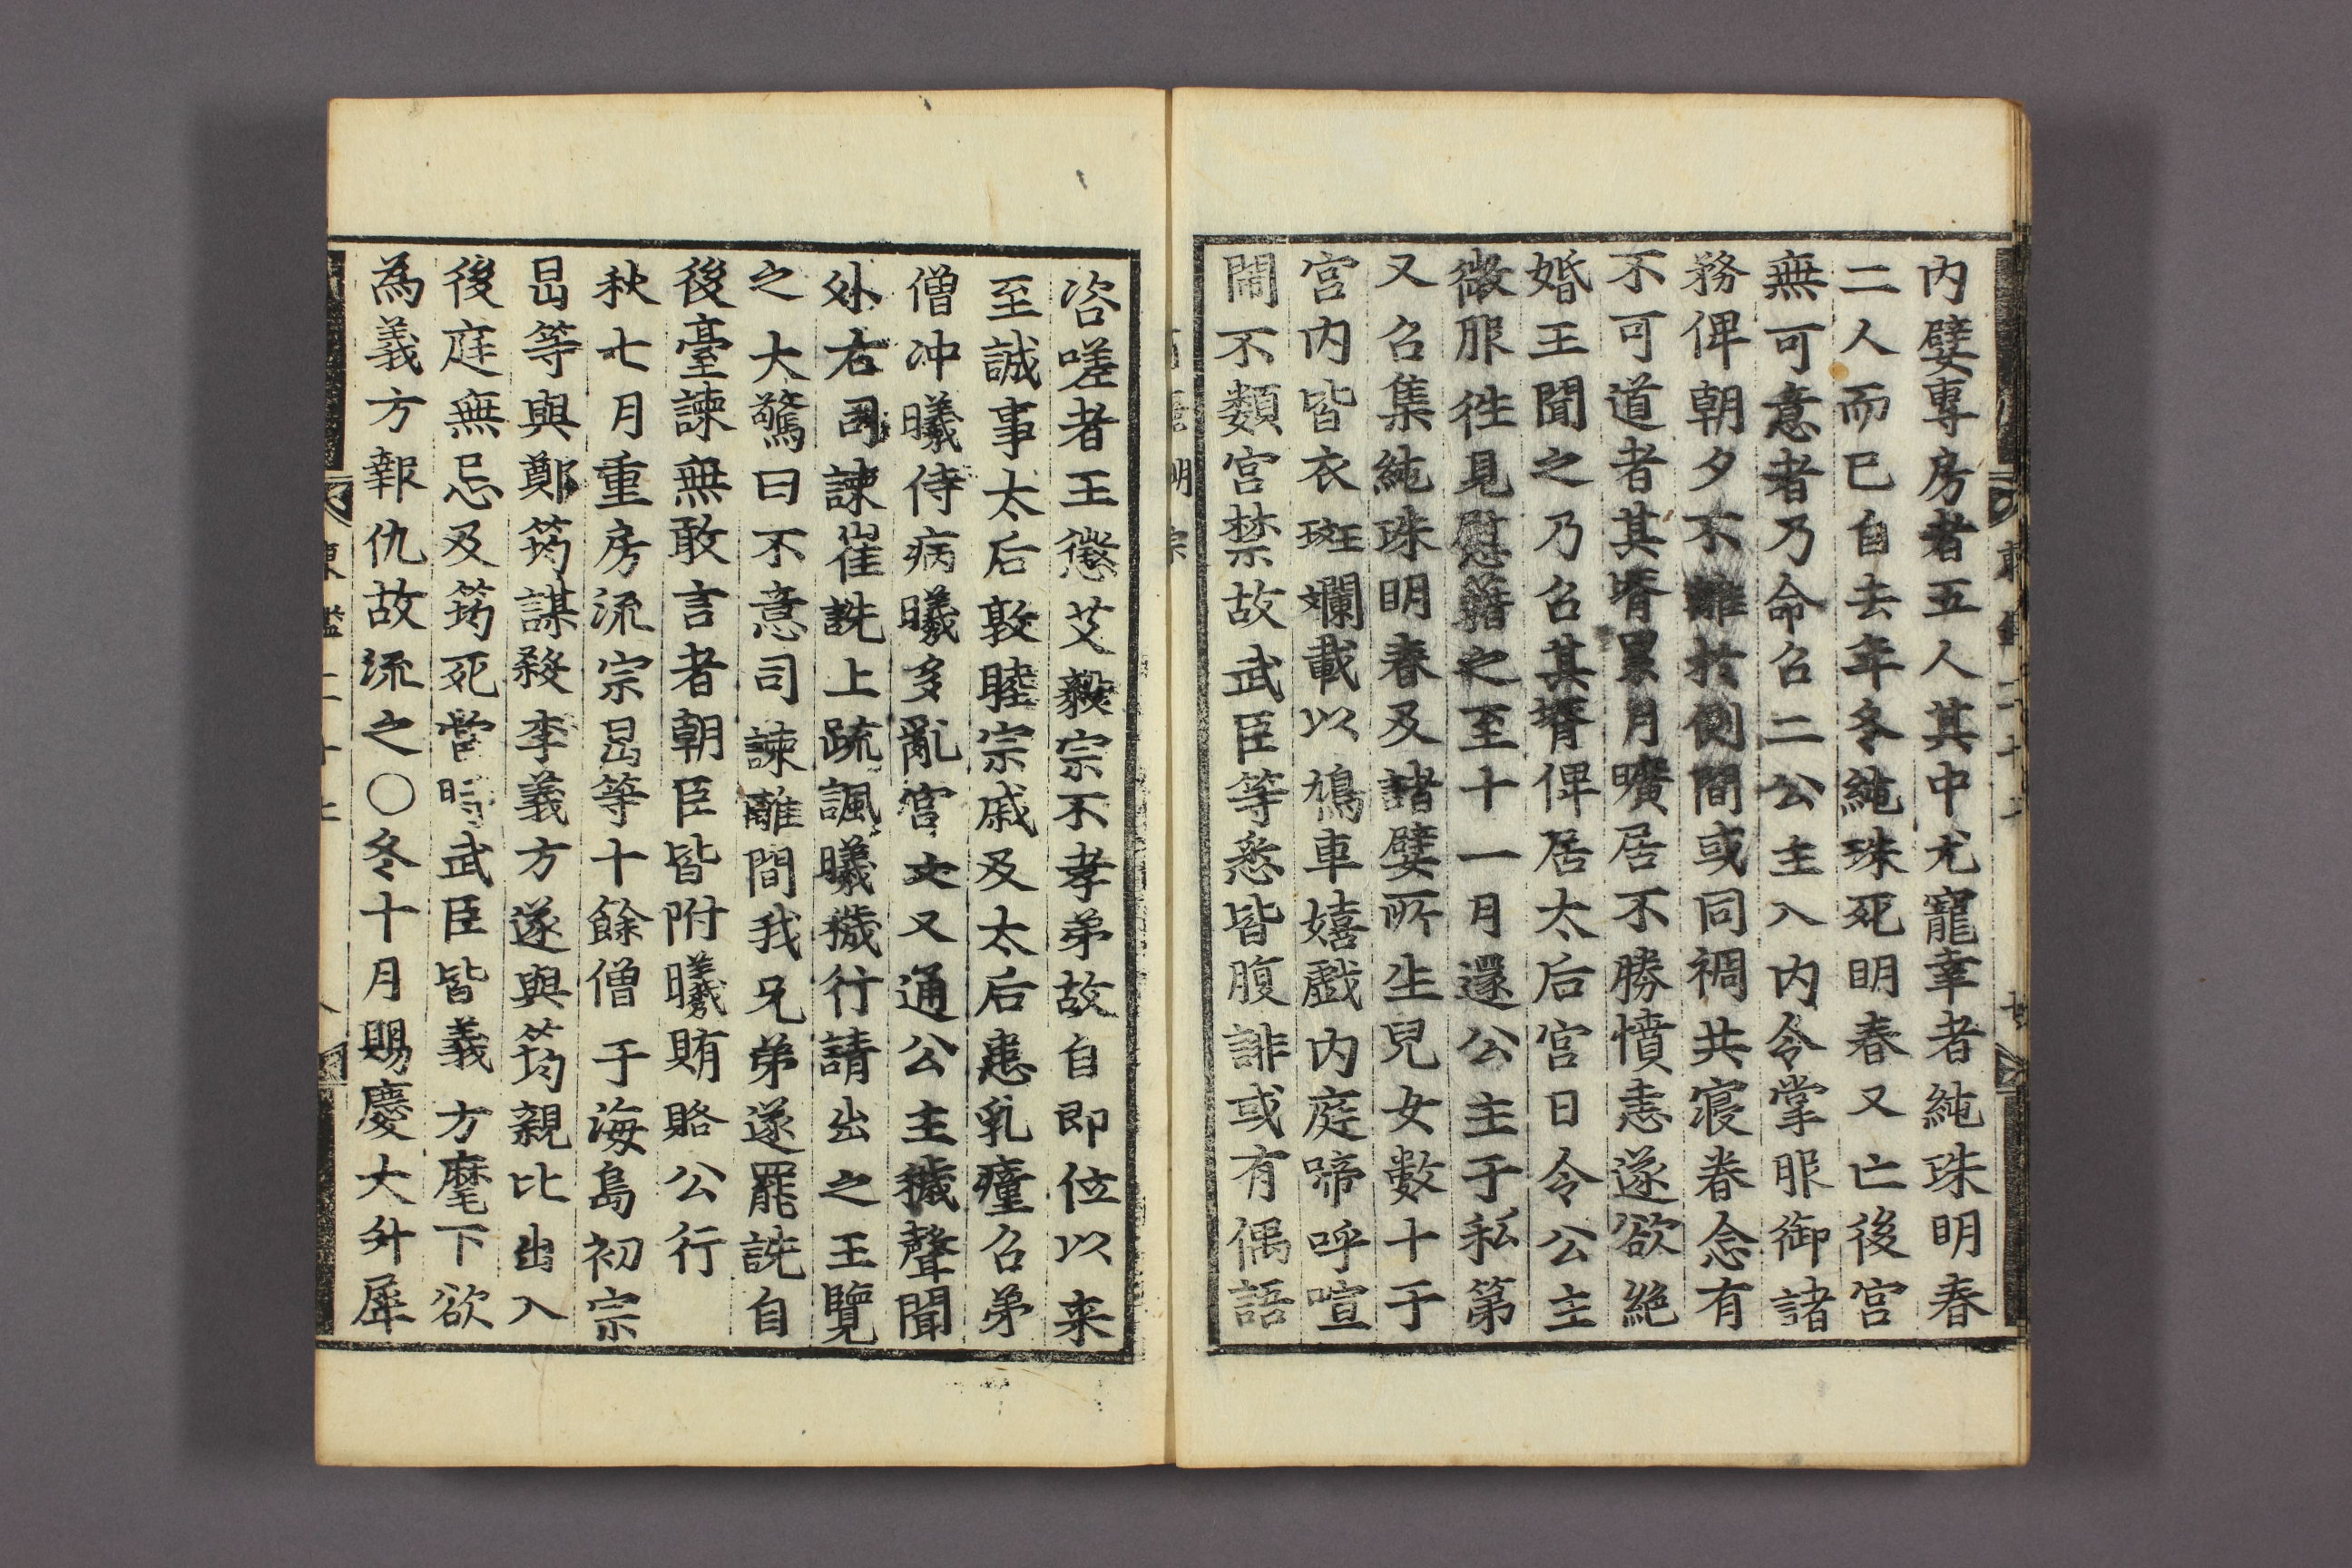 内嬖專房者五人其中尤寵幸者純珠明春
二人而已自去年冬純珠死明春又亡後宮
無可意者乃命召二公主入内令掌服御諸
務俾朝夕不離於側間或同裯共寢眷念有
不可道者其壻累月曠居不勝憤恚遂欲絶
婚王聞之乃召其壻俾居太后宮日令公主
微服徃見慰藉之至十一月還公主于私第
又召集純珠明春及諸嬖所生兒女數十于
宮内皆衣斑斕載以鳩車嬉戱内庭啼呼喧
閙不類宮禁故武臣等悉皆腹誹或有偶語
咨嗟者王懲艾毅宗不孝弟故自即位以来
至誠事太后敦睦宗戚及太后患乳瘇召弟
僧冲曦侍病曦多亂宮女又通公主穢聲聞
外右司諫崔詵上疏諷曦穢行請出之王覽
之大驚曰不意司諫離間我兄弟遂罷詵自
後臺諫無敢言者朝臣皆附曦賄賂公行
秋七月重房流宗旵等十餘僧于海島初宗
旵等與鄭筠謀殺李義方遂與筠親比出入
後庭無忌及筠死當時武臣皆義方麾下欲
為義方報仇故流之〇冬十月賜慶大升犀